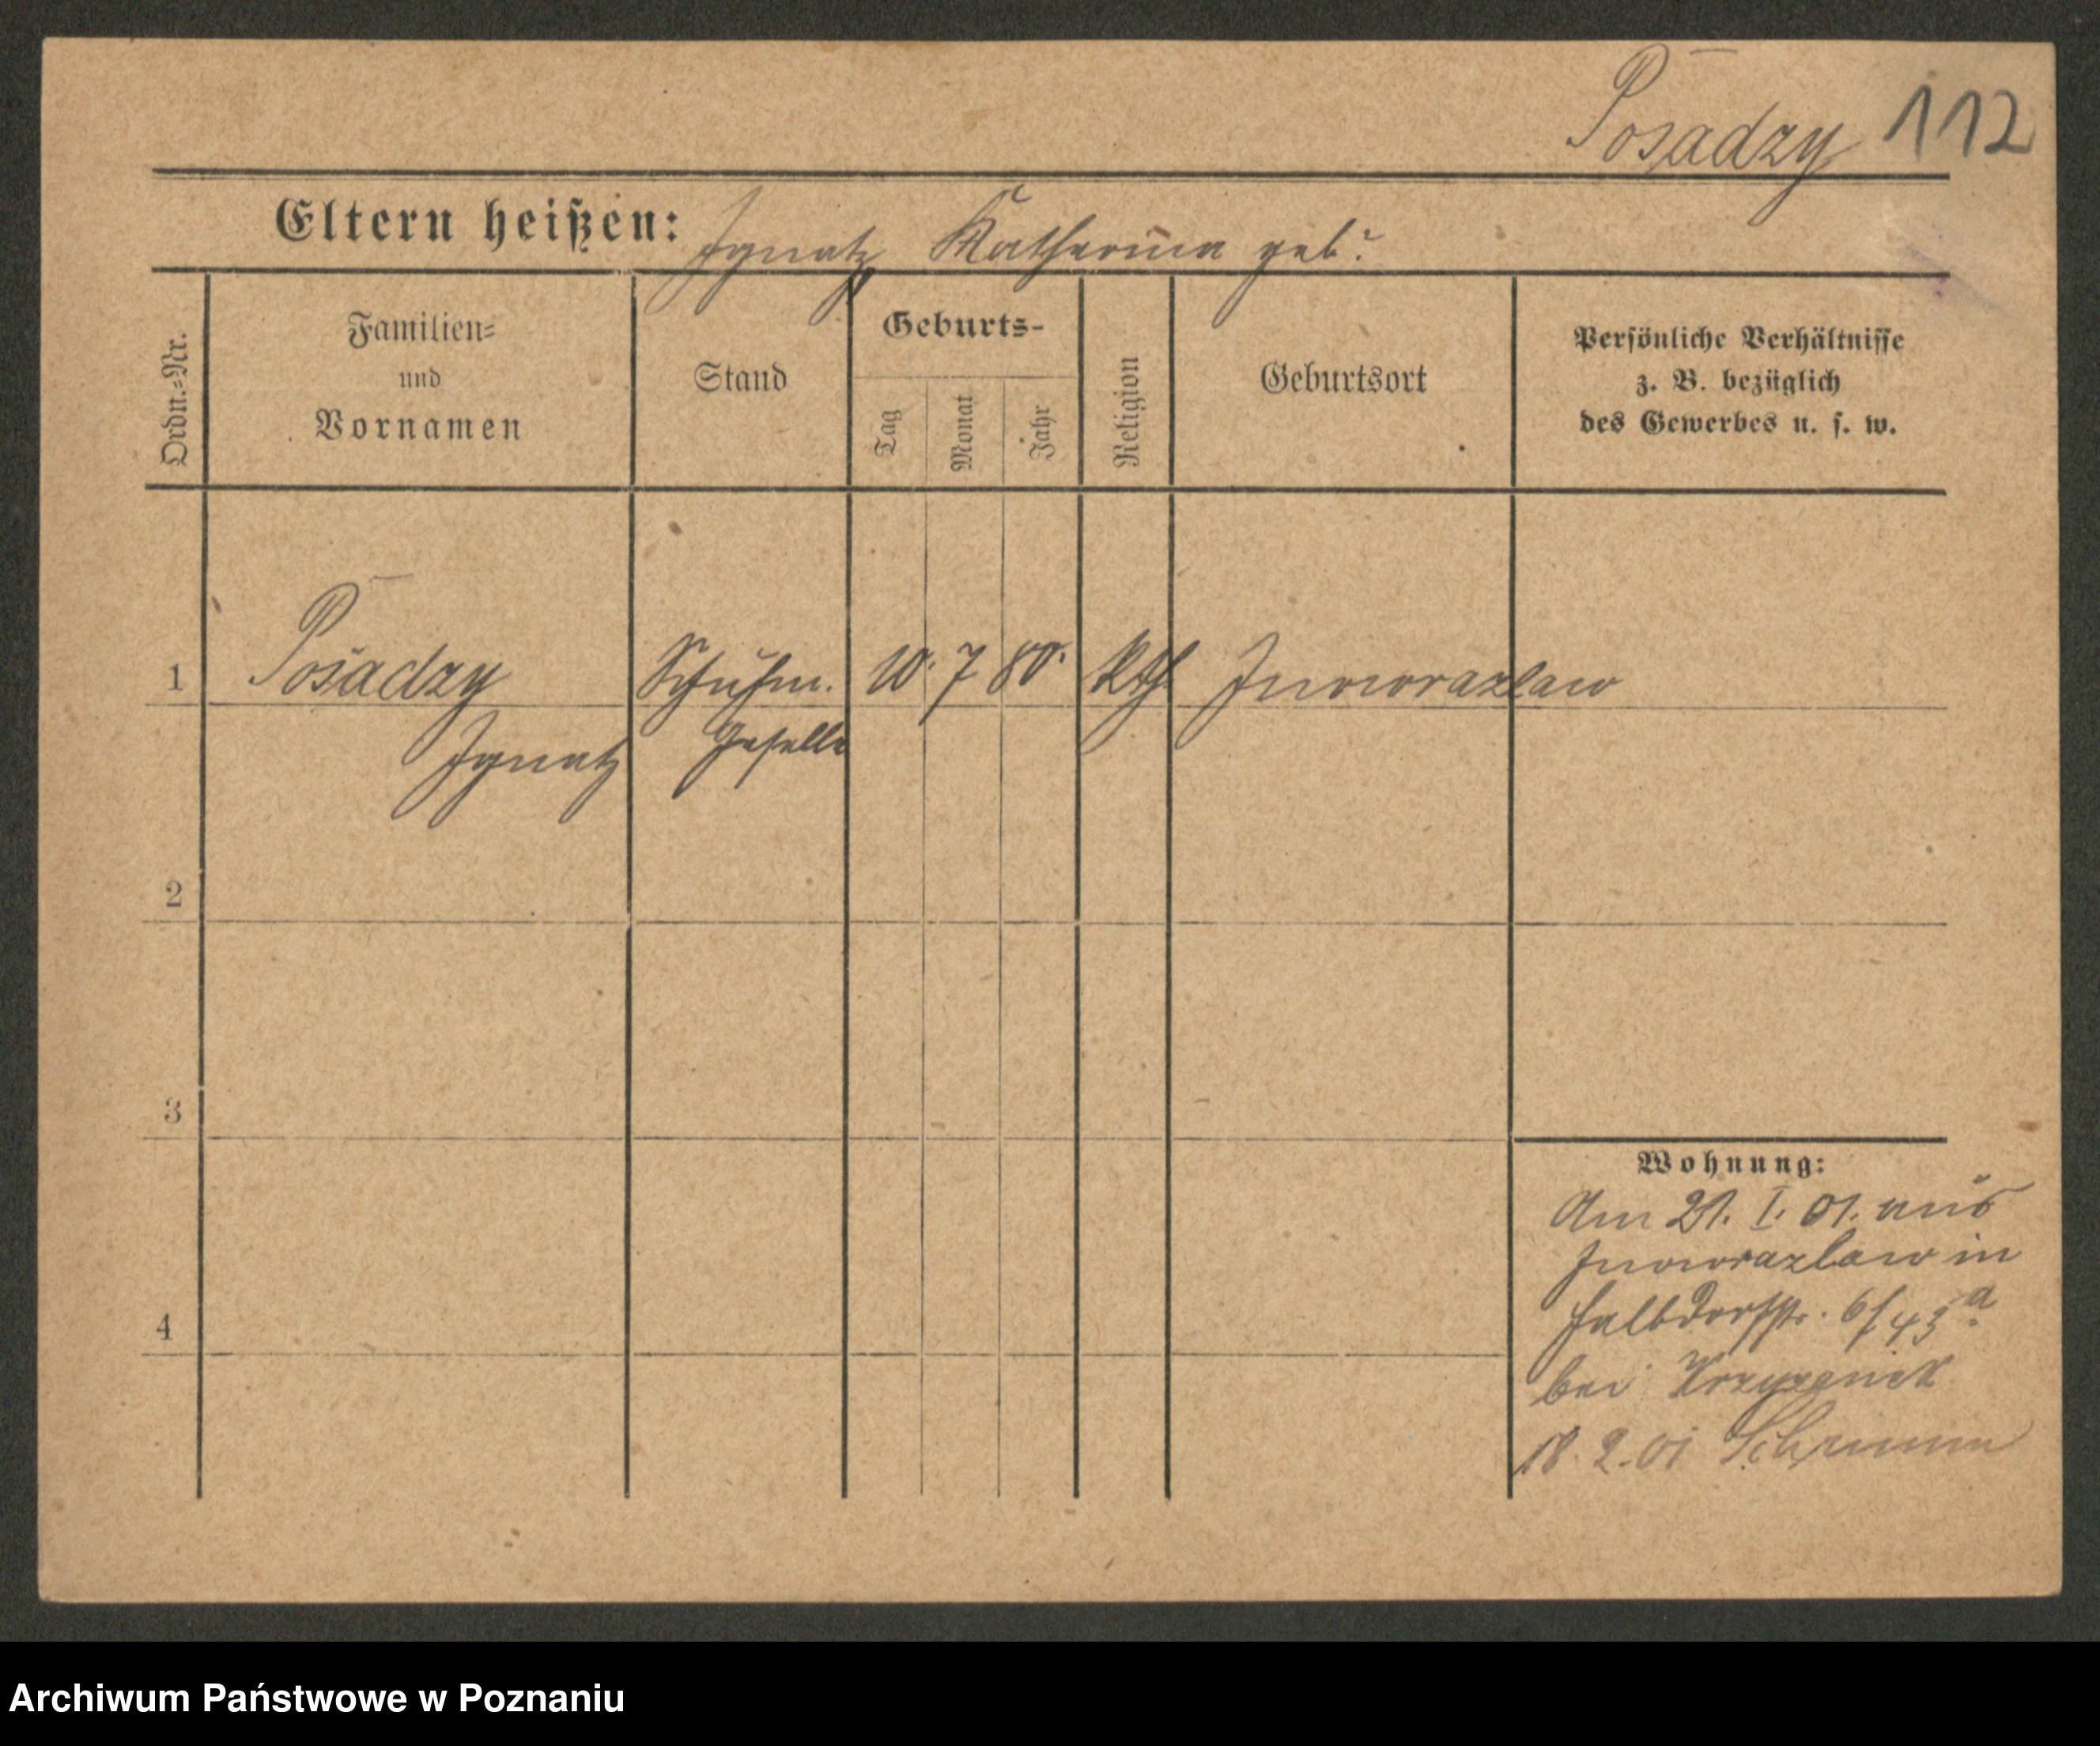 Posadzy 112
Eltern heißen: Ignatz Katharina geb:
Ordn.=Nr.
Familien=
und
Vornamen
Stand
Geburts-
Tag
Monat
Jahr
Religion
Geburtsort
Persönliche Verhältnisse
z. B. bezüglich
des Gewerbes u. s. w.
1 Posadzy Schuhm. 10. 7 80. Kth. Inowrazlaw
Ignatz Geselle
2
3
4
Wohnung:
Am 21. I. 01. aus
Inowrazlaw in
Halbdorfstr. 6/43a
bei
18. 2. 01 Schrimm
Archiwum Państwowe w Poznaniu